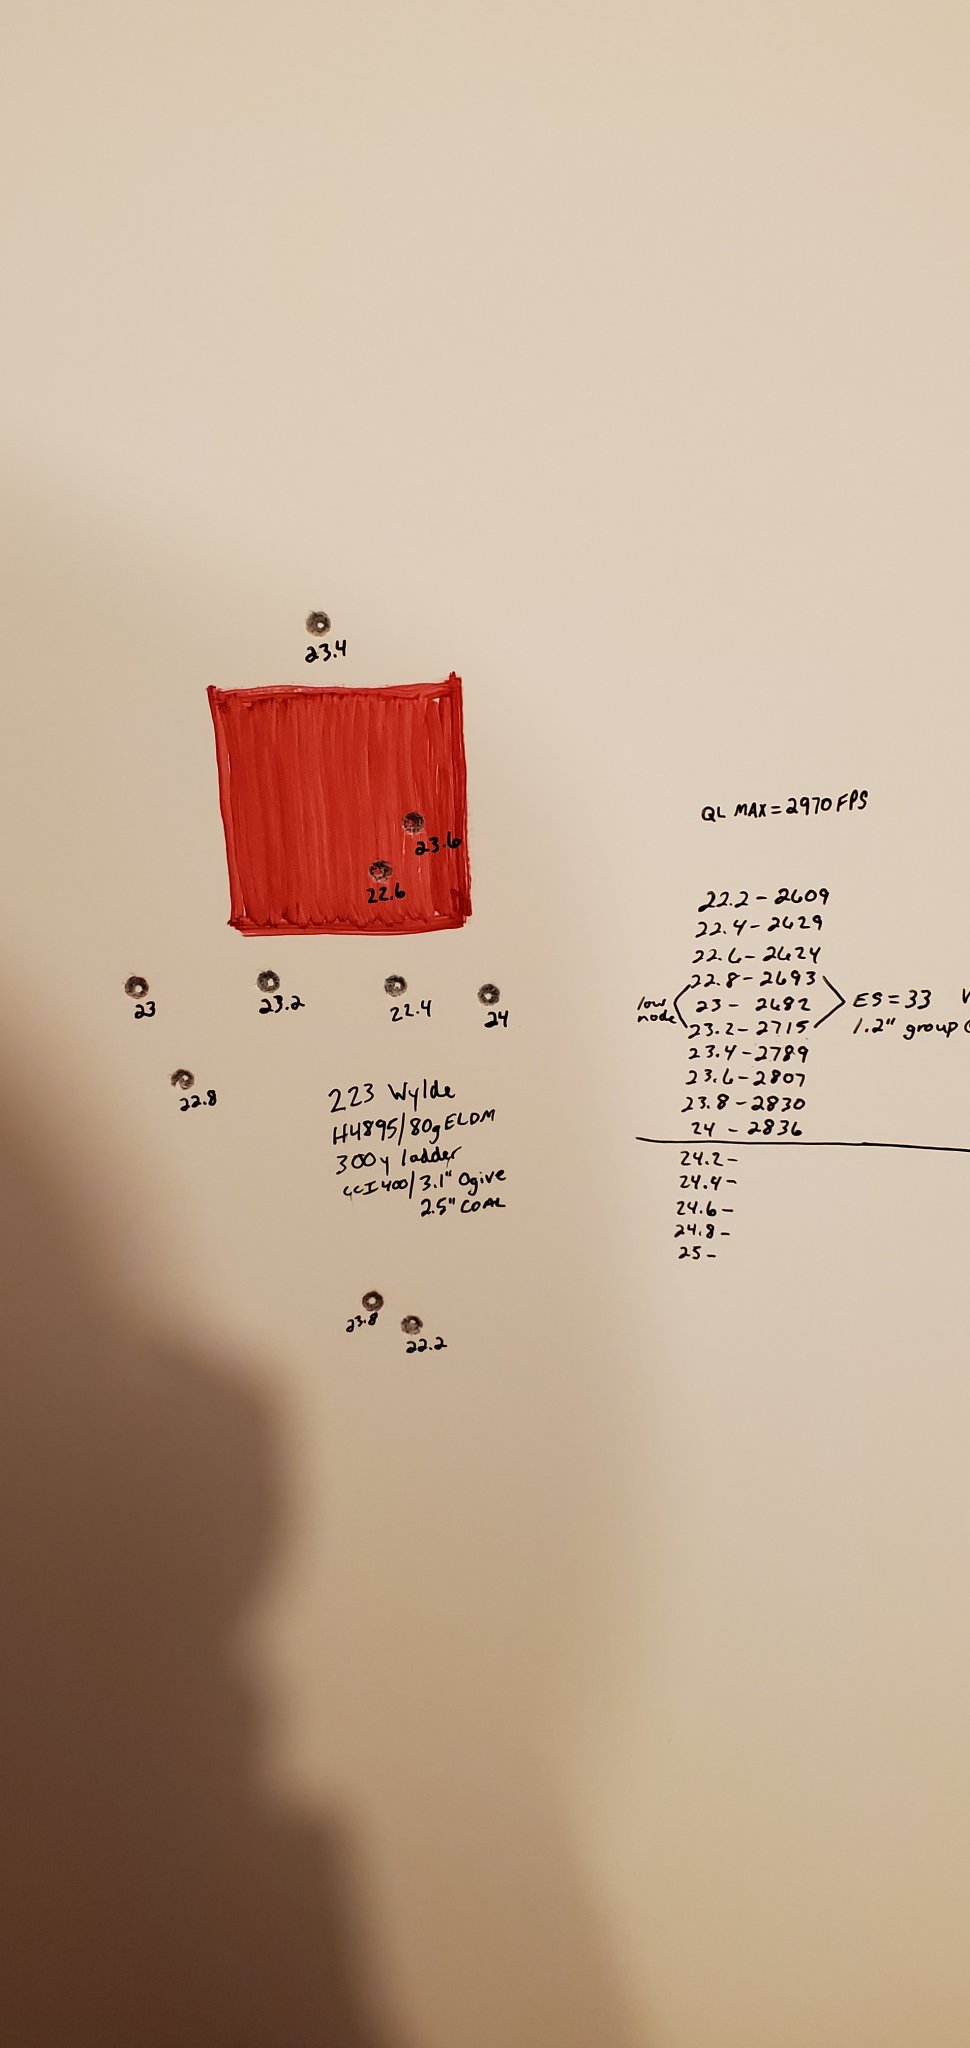 23.4
23.6
22.6
23
23.2
22.4
24
22.8
223 Wylde
H4895/80g ELDM
300y ladder
CCI400/3.1" Ogive
2.5" COAL
23.8
22.2
QL MAX = 2970 FPS
22.2 - 2609
22.4 - 2629
22.6 - 2624
22.8 - 2693
23 - 2682
23.2 - 2715
low
node
ES = 33
1.2" group
23.4 - 2789
23.6 - 2807
23.8 - 2830
24 - 2836
24.2 -
24.4 -
24.6 -
24.8 -
25 -